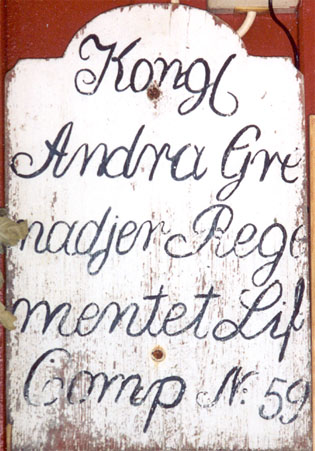 Kongl
Andra Gre
nadjer Rege
mentet Lif
Comp N. 59